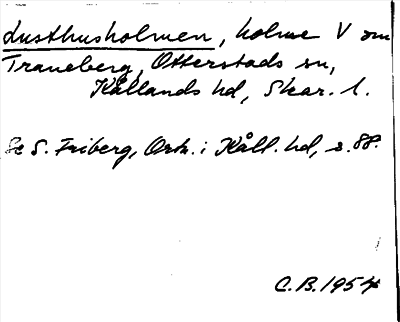 Lusthusholmen, holme V om
Traneberg, Otterstads sn,
Kållands hd, Skar. l.
Se S. Friberg, Ortn. i Kåll. hd, s. 88.
C.B. 1954